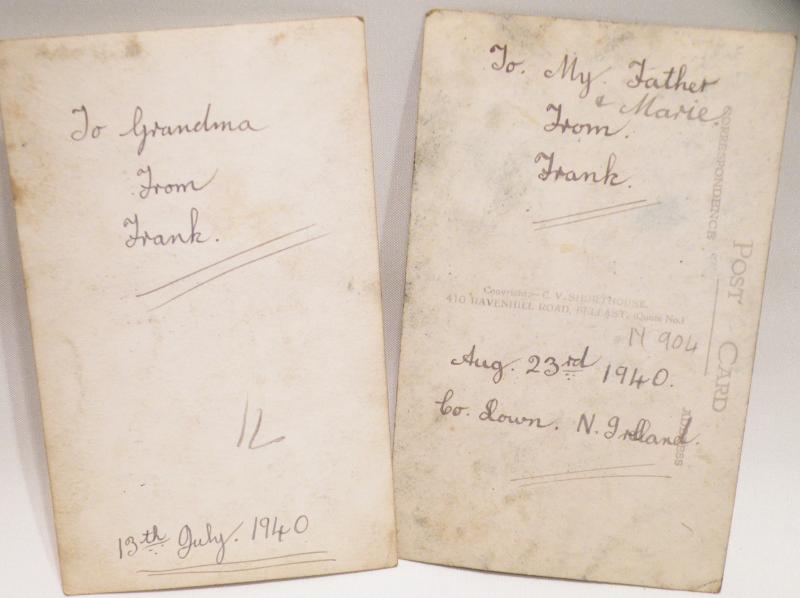 To Grandma
From
Frank.
12
13th July. 1940
To. My. Father
& Marie.
From.
Frank.
CORRESPONDENCE
POST CARD
ADDRESS
Copyright:— C. V. SHORTHOUSE,
410 RAVENHILL ROAD, BELFAST. (Quote No.)
N 904
Aug. 23rd 1940.
Co. Down. N. Ireland.